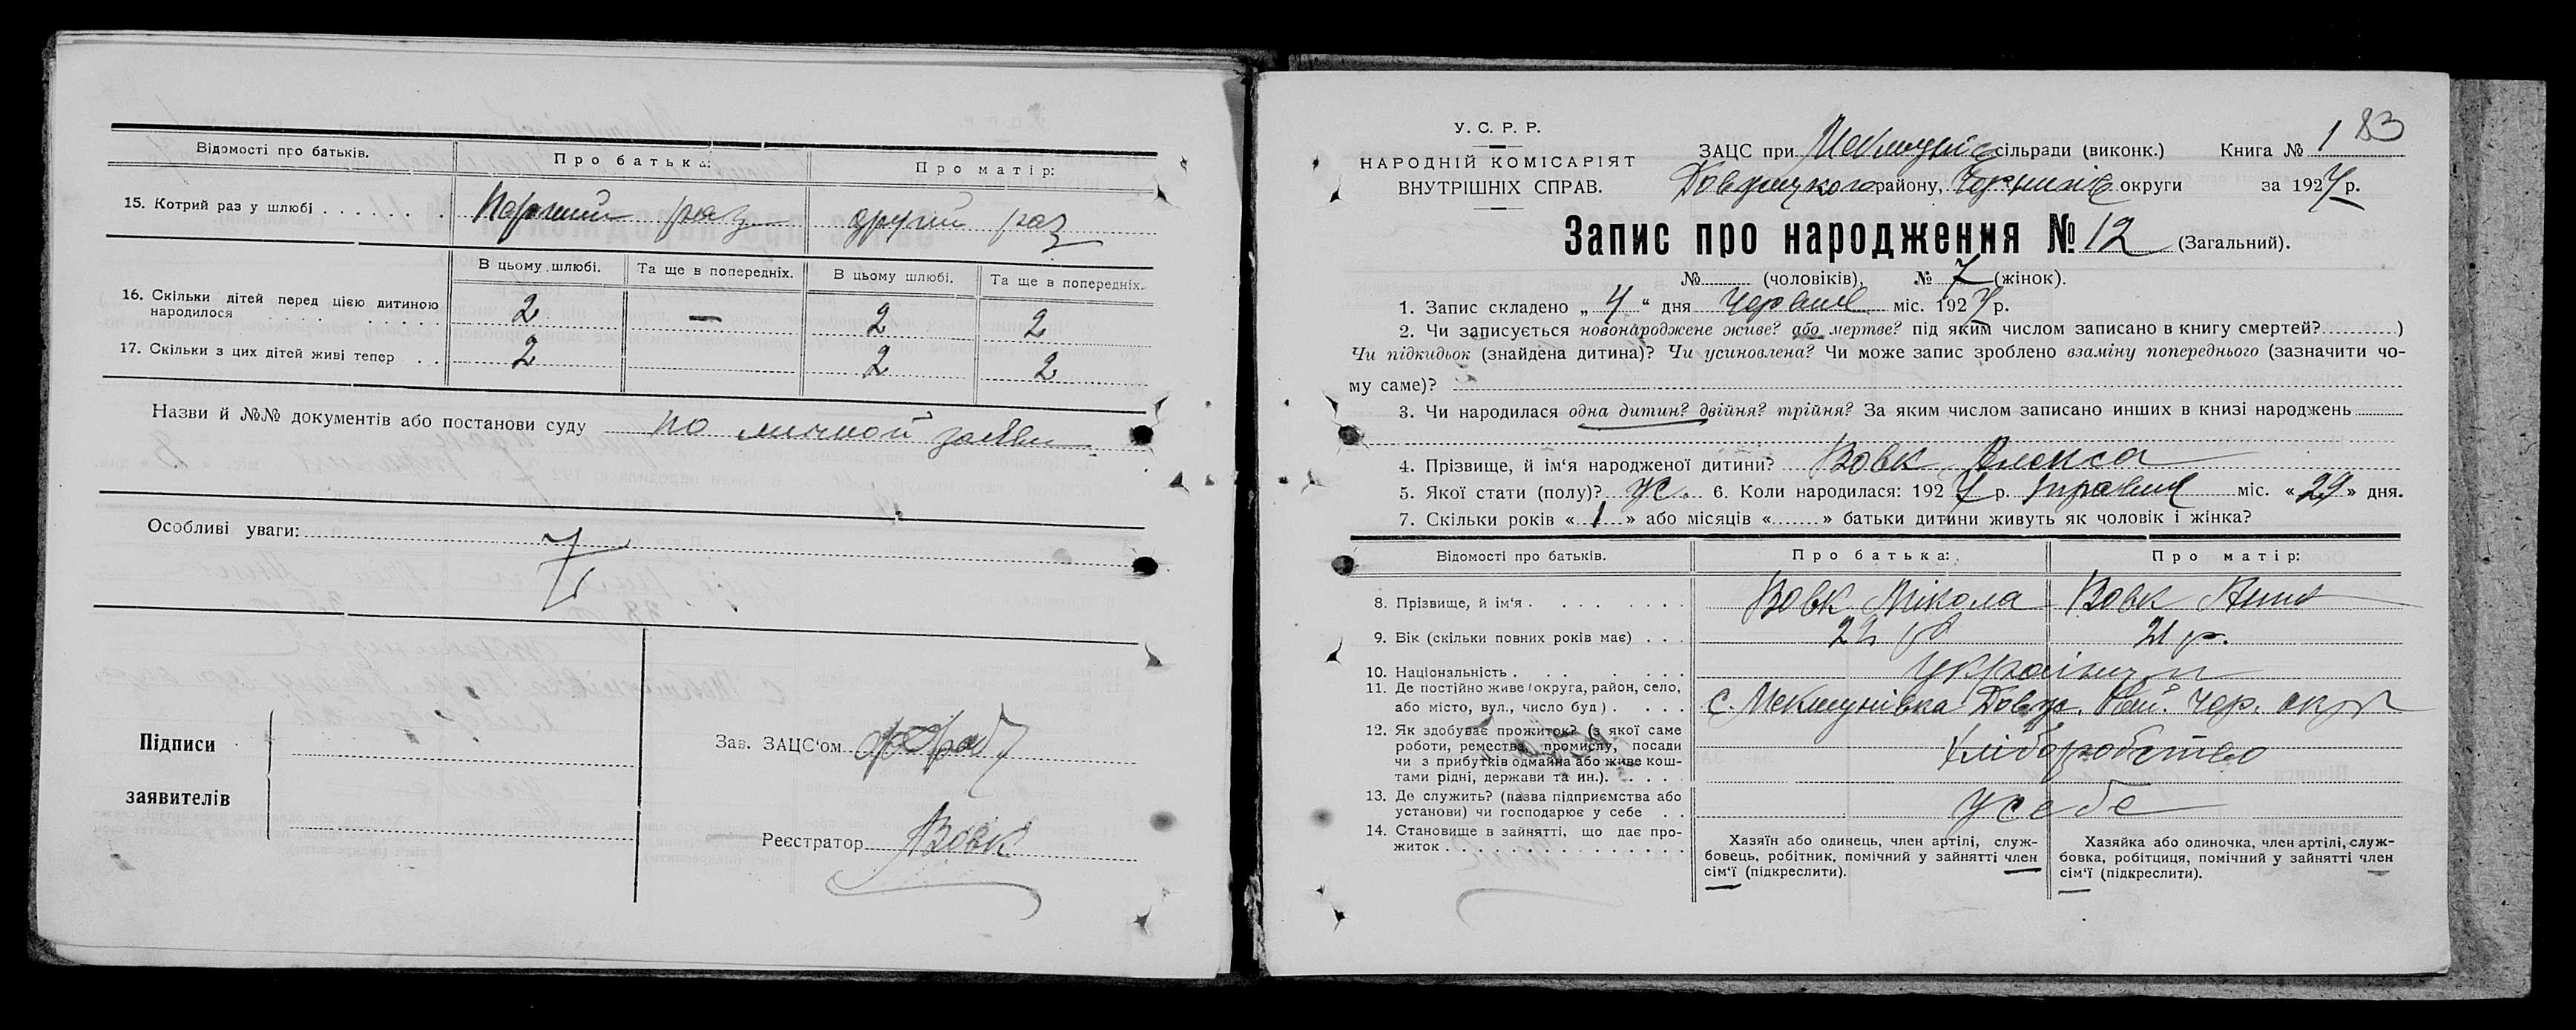 Відомості про батьків.
Про батька:
Про матір:
15. Котрий раз у шлюбі . . . . . . .
Перший раз
другий раз
В цьому шлюбі.
Та ще в попередніх.
В цьому шлюбі.
Та ще в попередніх.
16. Скільки дітей перед цією дитиною
народилося . . . . . . . . . . .
2 — 2 2
17. Скільки з цих дітей живі тепер . .
2 2 2
Назви й №№ документів або постанови суду по личной заяви
Особливі уваги:
Підписи
заявителів
Зав. ЗАЦС‘ом
Реєстратор Вовк
83
У. С. Р. Р.
НАРОДНІЙ КОМІСАРІЯТ
ВНУТРІШНІХ СПРАВ.
ЗАЦС при сільради (виконк.) Книга № 1
району, Чернигів округи за 1927 р.
Запис про народження № 12 (Загальний).
№ (чоловіків), № 7 (жінок).
1. Запис складено „ 4 “ дня червня міс. 1927 р.
2. Чи записується новонароджене живе? або мертве? під яким числом записано в книгу смертей? )
Чи підкидьок (знайдена дитина)? Чи усиновлена? Чи може запис зроблено взаміну попереднього (зазначити чо-
му саме)?
3. Чи народилася одна дитин? двійня? трійня? За яким числом записано инших в книзі народжень
4. Прізвище, й ім‘я народженої дитини? Вовк Олекса
5. Якої стати (полу)? ж. 6. Коли народилася: 1927 р. травня міс. «29» дня.
7. Скільки років « 1 » або місяців « » батьки дитини живуть як чоловік і жінка?
Відомості про батьків.
Про батька:
Про матір:
8. Прізвище, й ім‘я . . . . . . .
Вовк Мікола
Вовк Анна
9. Вік (скільки повних років має) . . .
21 р.
10. Національність . . . . . . .
українці
11. Де постійно живе (округа, район, село,
або місто, вул., число буд) . . . .
с. Мекшунівка Довж. Рай. Чер. окр
12. Як здобуває прожиток? (з якої саме
роботи, ремества, промислу, посади
чи з прибутків одмайна або живе кош-
тами рідні, держави та ин.). . . . .
хліборобство
13. Де служить? (назва підприємства або
установи) чи господарює у себе . .
у себе
14. Становище в зайнятті, що дає про-
житок . . . . . . . . . . . . . . .
Хазяїн або одинець, член артілі, служ-
бовець, робітник, помічний у зайнятті член
сім‘ї (підкреслити).
Хазяйка або одиночка, член артілі, служ-
бовка, робітциця, помічний у зайнятті член
сім‘ї (підкреслити).